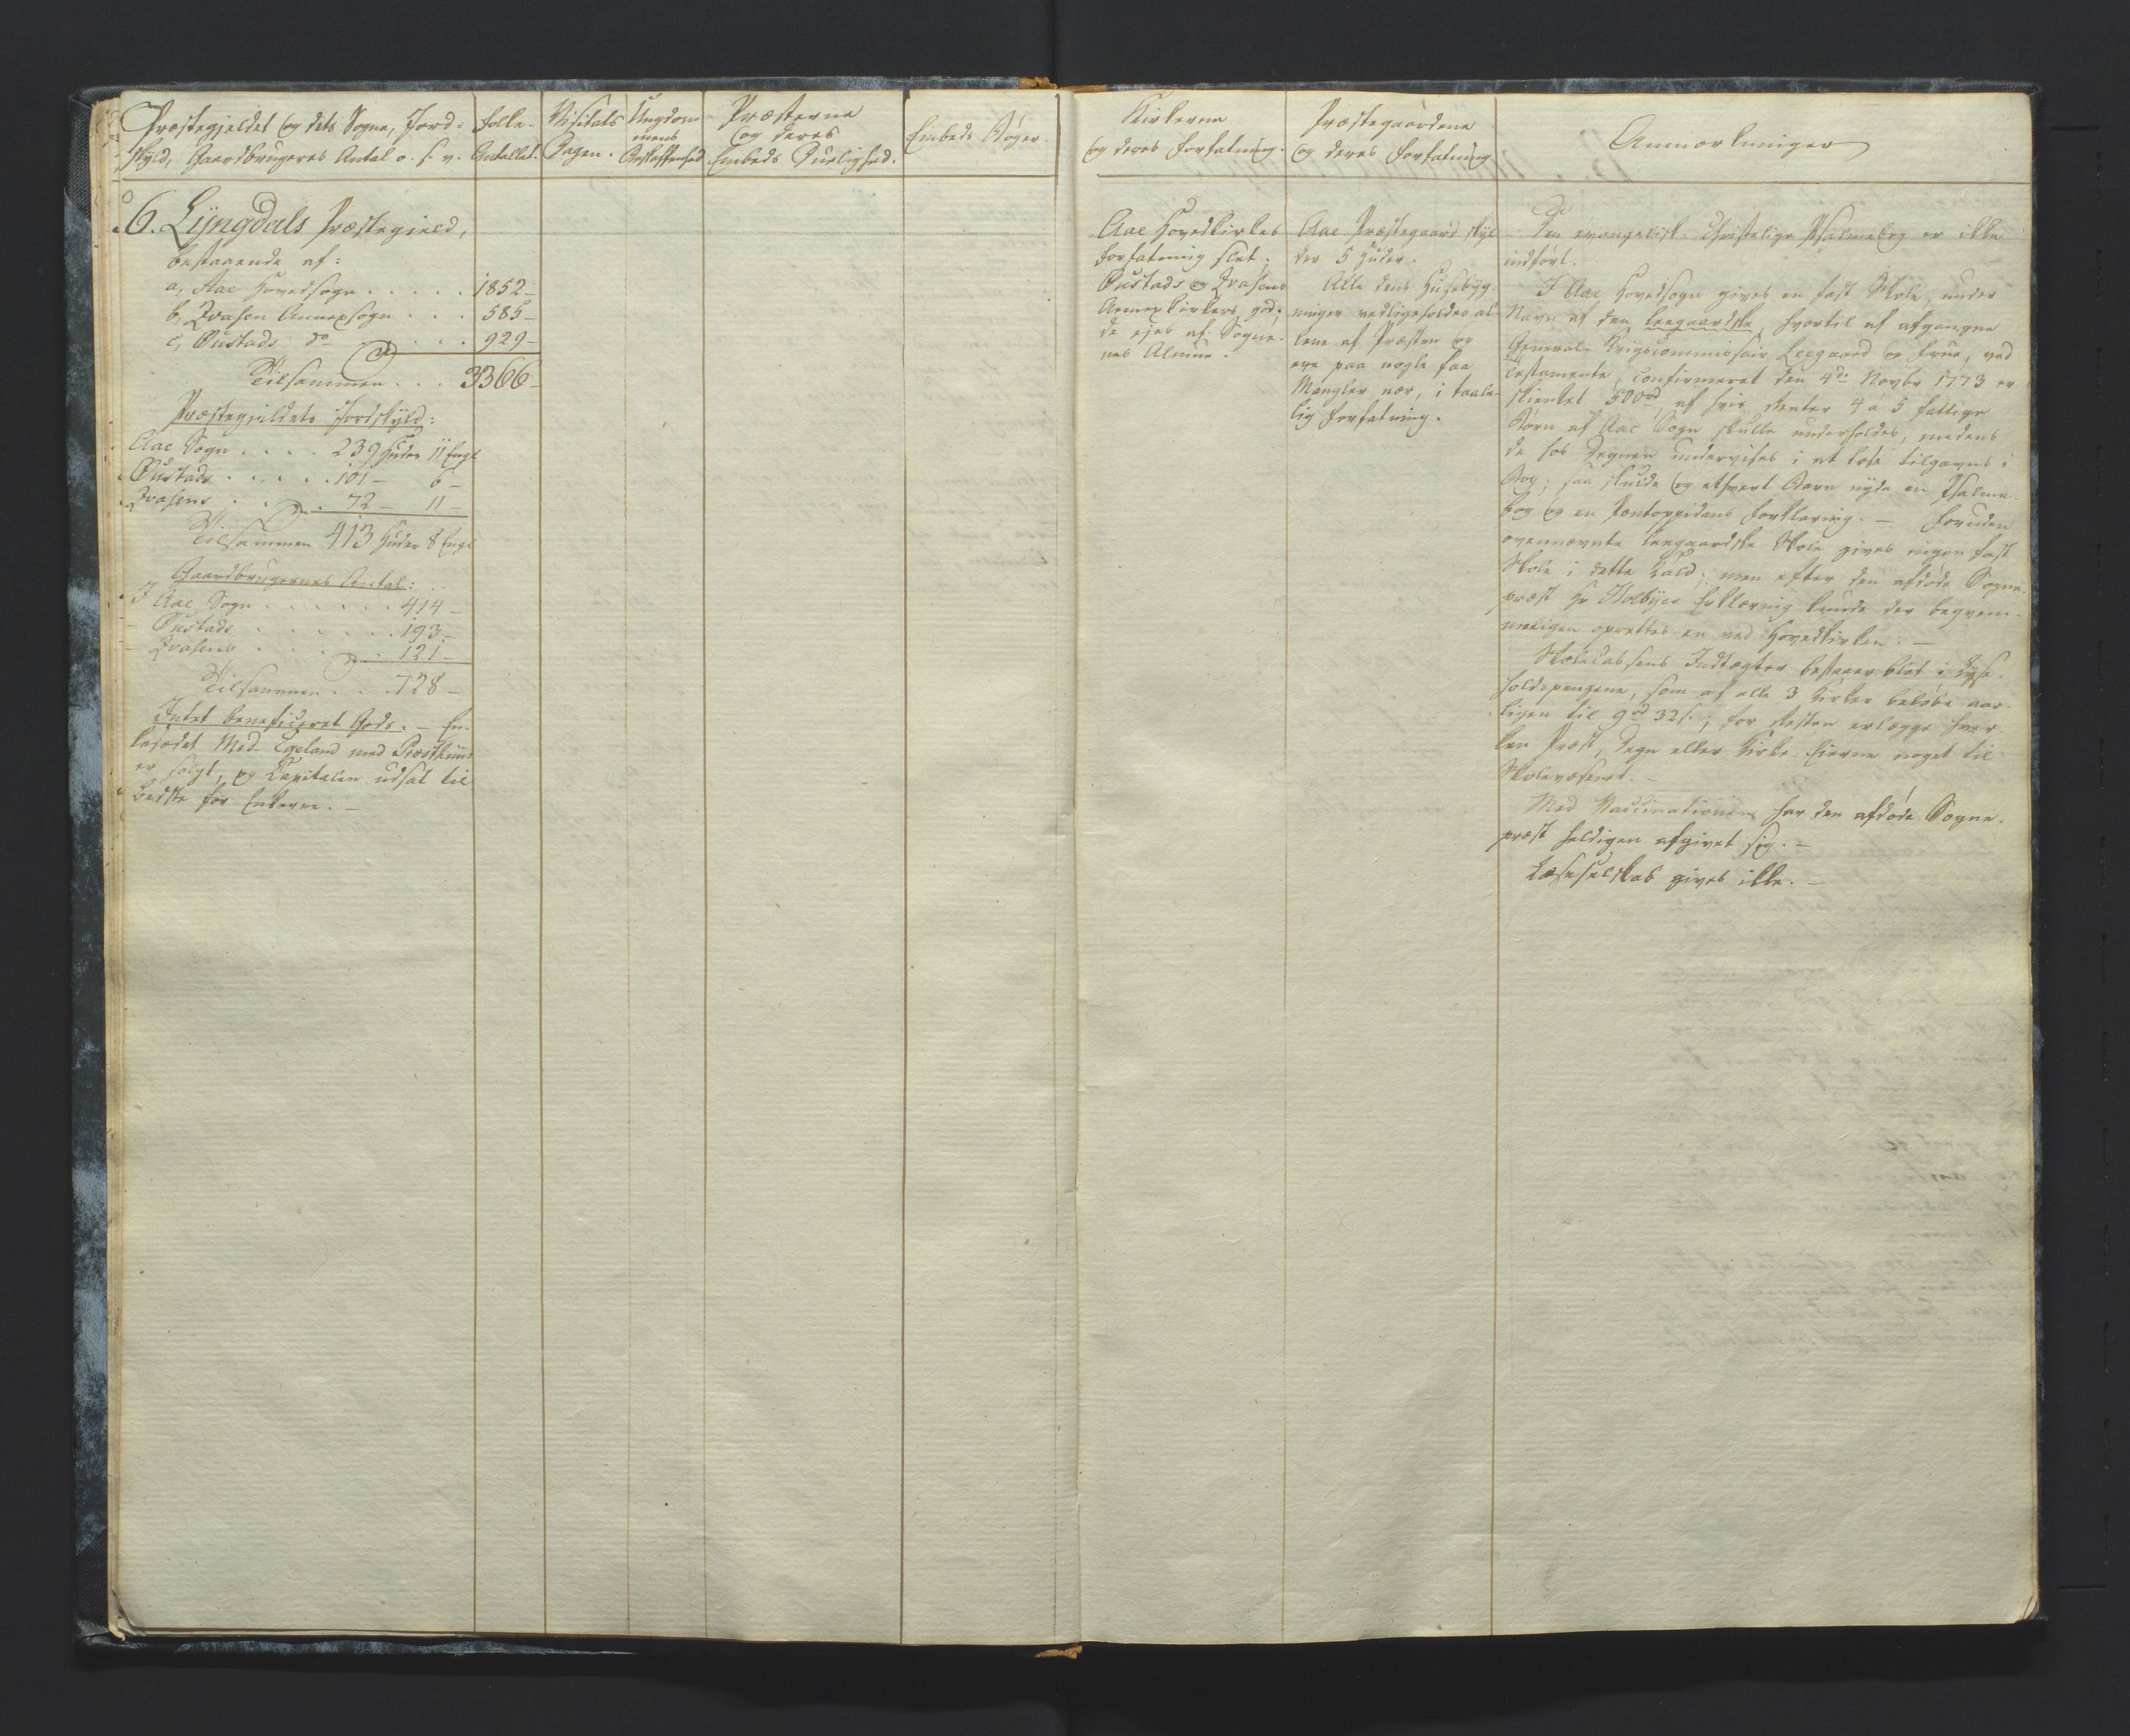 Præstegjeldet og dets Sogne, Jord-
skyld, Gaardbrugeres Antal o. s. v.
Folke-
Antallet.
Visitats
Dagen.
Ungdom-
mens
Beskaffenhed
Præsterne
og deres
Embeds Duelighed.
Embeds Bøger.
6. Lyngdals Præstegield,
bestaaende af:
a, Aae Hovedsogn . . . . . 1852-
b, Qvasen Annexsogn . . . 585-
c, Austads do . . . . . 929-
Tilsammen . . . 3366-
Præstegieldets Jordskyld:
Aae Sogn . . . . 239 Huder 11 Engl
Austads . . . . . . 101 - 6 -
Qvasens . . . . 72 - 11 -
Tilsammen 413 Huder 8 Engl
Gaardbrugernes Antal:
I Aae Sogn . . . . . . 414-
- Austads . . . . . . 193-
- Qvasens . . . . . 121-
Tilsammen . . . 728-
Intet beneficeret Gods. - En-
kesædet Med-Egeland med Præsthuus
er solgt, og Capitalen udsat til
bedste for Enkerne. -
Kirkerne
og deres Forfatning.
Aae Hovedkirkes
Forfatning slet;
Austads og Qvasens
Annex Kirkers god;
de ejes af Sogne-
nes Almue.
Præstegaardene
og deres Forfatning
Aae Præstegaard skyl-
der 5 Huder.
Alle dens Huusebyg-
ninger vedligeholdes al-
lene af Præsten og
ere paa nogle faa
Mangler nær, i taale-
lig Forfatning.
Anmærkninger
Den evangelisk-christelige Psalmebog er ikke
indført.
I Aae Hovedsogn gives en fast Skole, under
Navn af den Leegaardske, hvortil af afgangne
General-Krigscommissair Leegaard og Frue, ved
Testamente, confirmeret den 4de Novbr 1773 er
skienket 500 rd, af hvis Renter 4 à 5 fattige
Børn af Aae Sogn skulle underholdes, medens
de hos Degnen undervises i at læse tilgavns i
Bog; saa skulde og ethvert Barn nyde en Psalme-
bog og en Pontoppidans Forklaring. - Foruden
ovennævnte Leegaardske Skole gives ingen fast
Skole i dette Kald; men efter den afdøde Sogne-
præst Hr Holbyes Erklæring kunde der beqvem-
meligen oprettes en ved Hovedkirken. -
Skolecassens Indtægter bestaaer blot i Lyse-
holdspengene, som af alle 3 Kirker beløbe aar-
ligen til 9 rd 32 s.; for Resten erlægge hver-
ken Præst, Degn eller Kirke-Eierne noget til
Skolevæsenet. -
Med Vaccinationen har den afdøde Sogne-
præst heldigen afgivet sig. -
Læseselskab gives ikke. -